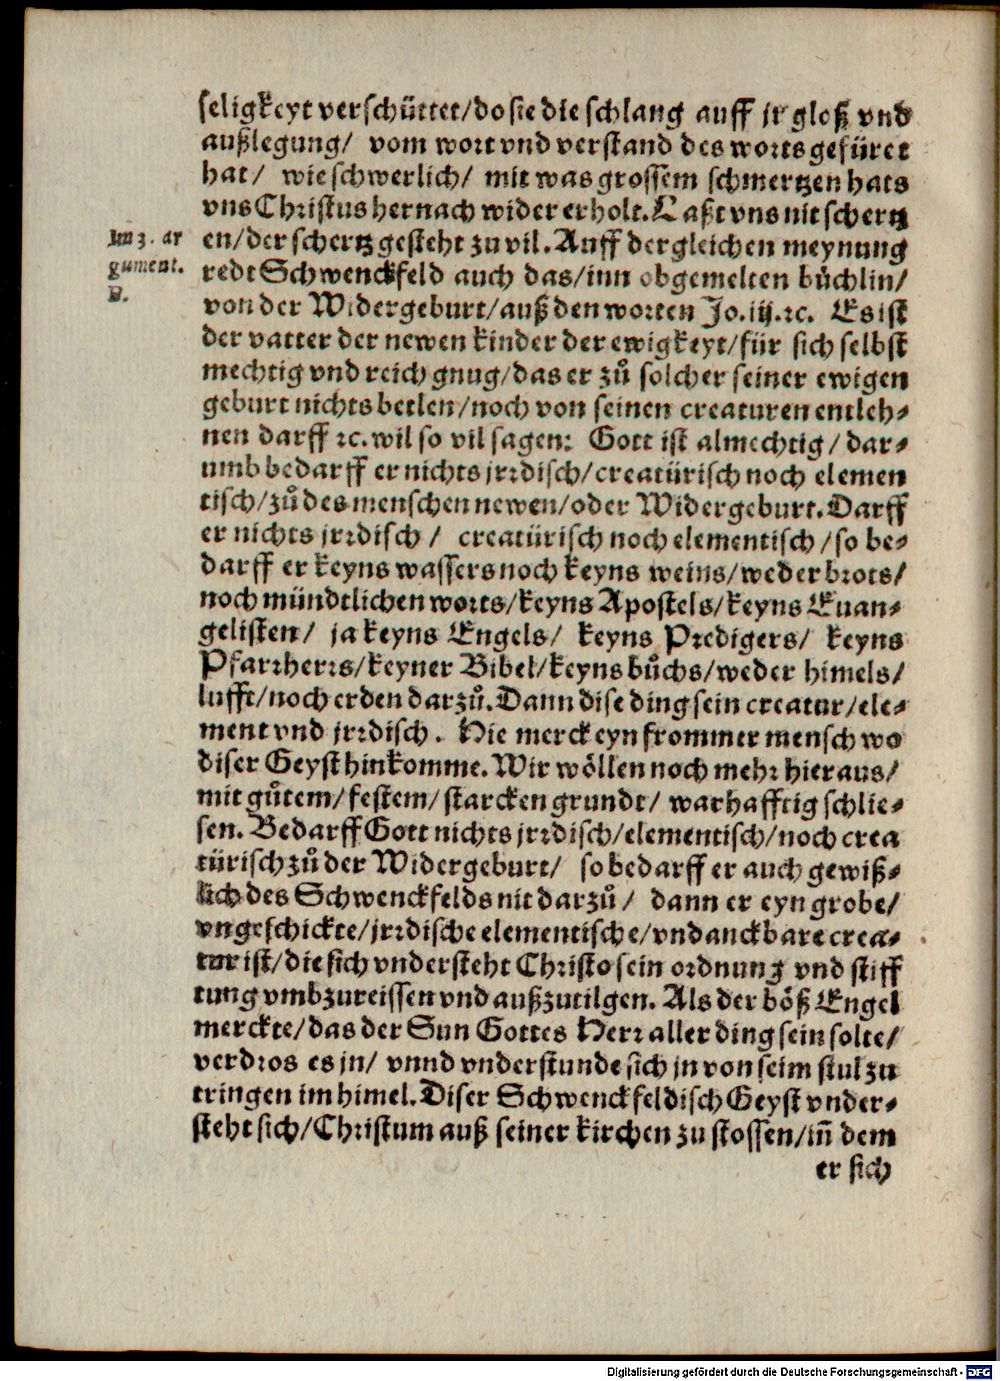 seligkeyt verschüttet/do sie die schlang auff jr gloß vnd
außlegung/ vom wort vnd verstand des worts gefüret
hat/ wie schwerlich/ mit was grossem schmertzen hats
vns Christus hernach wider erholt. Laßt vns nit schertz
en/der schertz gesteht zu vil. Auff dergleichen meynung
Im 3. ar
gument.
B.
redt Schwenckfeld auch das/inn obgemelten bůchlin/
von der Widergeburt/auß den worten Jo.iij.ꝛc. Es ist
der vatter der newen kinder der ewigkeyt/für sich selbst
mechtig vnd reich gnug/das er zů solcher seiner ewigen
geburt nichts betlen/noch von seinen creaturen entleh⸗
nen darff ꝛc. wil so vil sagen: Gott ist almechtig/dar⸗
umb bedarff er nichts jrrdisch/creatürisch noch elemen
tisch/zů des menschen newen/oder Widergeburt. Darff
er nichts jrrdisch/ creatürisch noch elementisch/so be⸗
darff er keyns wassers noch keyns weins/weder brots/
noch mündtlichen worts/keyns Apostels/keyns Euan⸗
gelisten/ ja keyns Engels/ keyns Predigers/ keyns
Pfarrherrs/keyner Bibel/keyns bůchs/weder himels/
lufft/noch erden darzů. Dann dise ding sein creatur/ele⸗
ment vnd jrrdisch. Hie merck eyn frommer mensch wo
diser Geyst hinkomme. Wir wöllen noch mehr hieraus/
mit gůtem/festem/starcken grundt/ warhafftig schlie⸗
sen. Bedarff Gott nichts jrrdisch/elementisch/noch crea
türisch zů der Widergeburt/ so bedarff er auch gewiß⸗
lich des Schwenckfelds nit darzů/ dann er eyn grobe/
vngeschickte/jrrdische elementische/vndanckbare crea⸗
tur ist/die sich vndersteht Christo sein ordnung vnd stiff
tung vmbzureissen vnd außzutilgen. Als der böß Engel
merckte/das der Sun Gottes Herr aller ding sein solte/
verdros es jn/ vnnd vnderstunde sich jn von seim stul zu
tringen im himel. Diser Schwenckfeldisch Geyst vnder⸗
steht sich/Christum auß seiner kirchen zu stossen/iñ dem
er sich
Digitalisierung gefördert durch die Deutsche Forschungsgemeinschaft - DFG